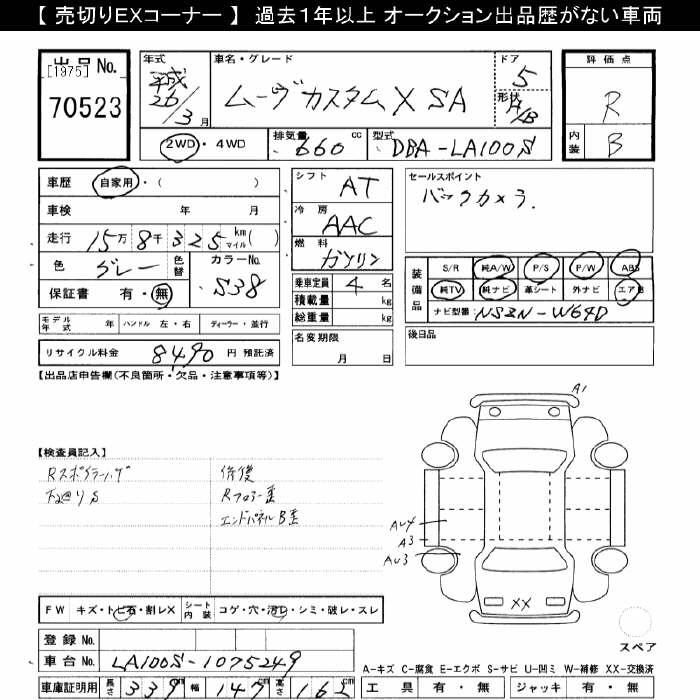 【 売切りEXコーナー 】 過去1年以上 オークション出品歴がない車両
出品 No.
[1975]
70523
年式
平成
26/3月
車名・グレード
ムーヴカスタム X SA
ドア
5
形状
評価点
R
内装
B
2WD・4WD
排気量
660 cc
型式
DBA-LA100S
車歴 自家用・( )
車検 年 月
走行 15万 8千 325 km マイル( )
色 グレー 色替 カラーNo. S38
保証書 有・無
シフト
AT
冷房
AAC
燃料
ガソリン
乗車定員 4 名
積載量 kg
総重量 kg
名変期限
月 日
セールスポイント
バックカメラ.
装備品
S/R 純A/W P/S P/W ABS
純TV 純ナビ 革シート 外ナビ エアB
ナビ型番 NSZN-W64D
後日品
モデル年式 年 ハンドル 左・右 ディーラー・並行
リサイクル料金 8490 円 預託済
【出品店申告欄(不良箇所・欠品・注意事項等)】
A1
【検査員記入】
Rスポイラーハゲ 修復
Rフロアー歪
エンドパネルB歪
AU4
A3
AU3
XX
FW キズ・トビ石・割レX シート内装 コゲ・穴・汚レ・シミ・破レ・スレ
スペア
登録 No.
車台 No. LA100S-1075249
A-キズ C-腐食 E-エクボ S-サビ U-凹ミ W-補修 XX-交換済
車庫証明用 長さ 339 cm 幅 147 cm 高さ 162 cm
工具 有・無 ジャッキ 有・無